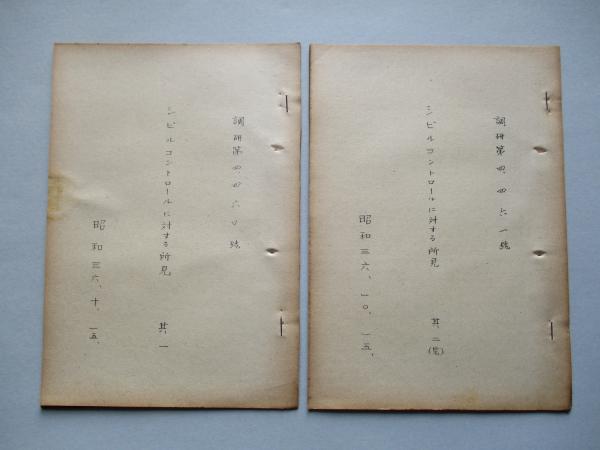 調研第四、四六〇號
シビルコントロールに対する所見
其一
昭和三六、十、一五、
調研第四、四六一號
シビルコントロールに対する所見
其二(完)
昭和三六、一〇、一五、